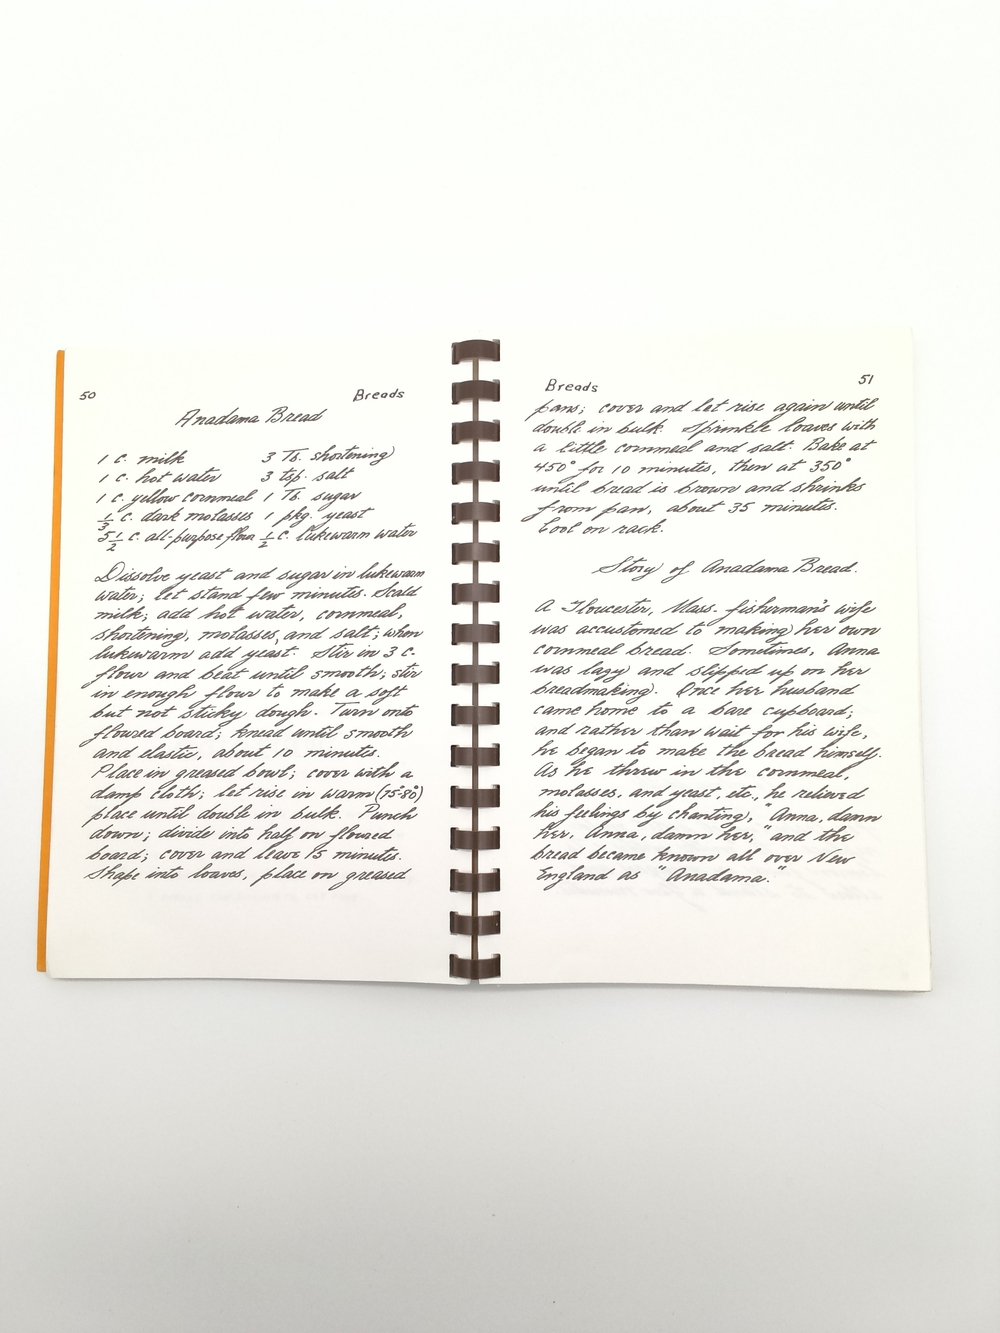 50
Breads
Anadama Bread
1 c. milk 3 Tb. shortening
1 c. hot water 3 tsp. salt
1 c. yellow cornmeal 1 Tb. sugar
1/3 c. dark molasses 1 pkg. yeast
5 1/2 c. all-purpose flour 1/2 c. lukewarm water
Dissolve yeast and sugar in lukewarm
water; let stand few minutes. Scald
milk; add hot water, cornmeal,
shortening, molasses, and salt; when
lukewarm add yeast. Stir in 3 c.
flour and beat until smooth; stir
in enough flour to make a soft
but not sticky dough. Turn onto
floured board; knead until smooth
and elastic, about 10 minutes.
Place in greased bowl; cover with a
damp cloth; let rise in warm (75-80°)
place until double in bulk. Punch
down; divide into half on floured
board; cover and leave 15 minutes.
Shape into loaves, place on greased
51
Breads
pans; cover and let rise again until
double in bulk. Sprinkle loaves with
a little cornmeal and salt. Bake at
450° for 10 minutes, then at 350°
until bread is brown and shrinks
from pan, about 35 minutes.
Cool on rack.
Story of Anadama Bread.
A Gloucester, Mass. fisherman's wife
was accustomed to making her own
cornmeal bread. Sometimes, Anna
was lazy and slipped up on her
breadmaking. Once her husband
came home to a bare cupboard;
and rather than wait for his wife,
he began to make the bread himself.
As he threw in the cornmeal,
molasses, and yeast, etc., he relieved
his feelings by chanting, "Anna, damn
her, Anna, damn her," and the
bread became known all over New
England as "Anadama."